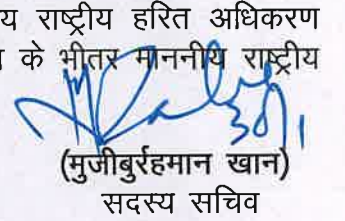 य राष्ट्रीय हरित अधिकरण
के भीतर माननीय राष्ट्रीय
(मुजीबुर्रहमान खान)
सदस्य सचिव